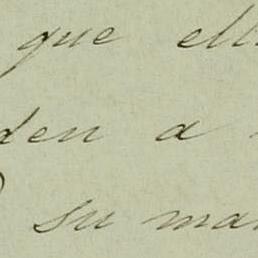 que ell
den a
su mar